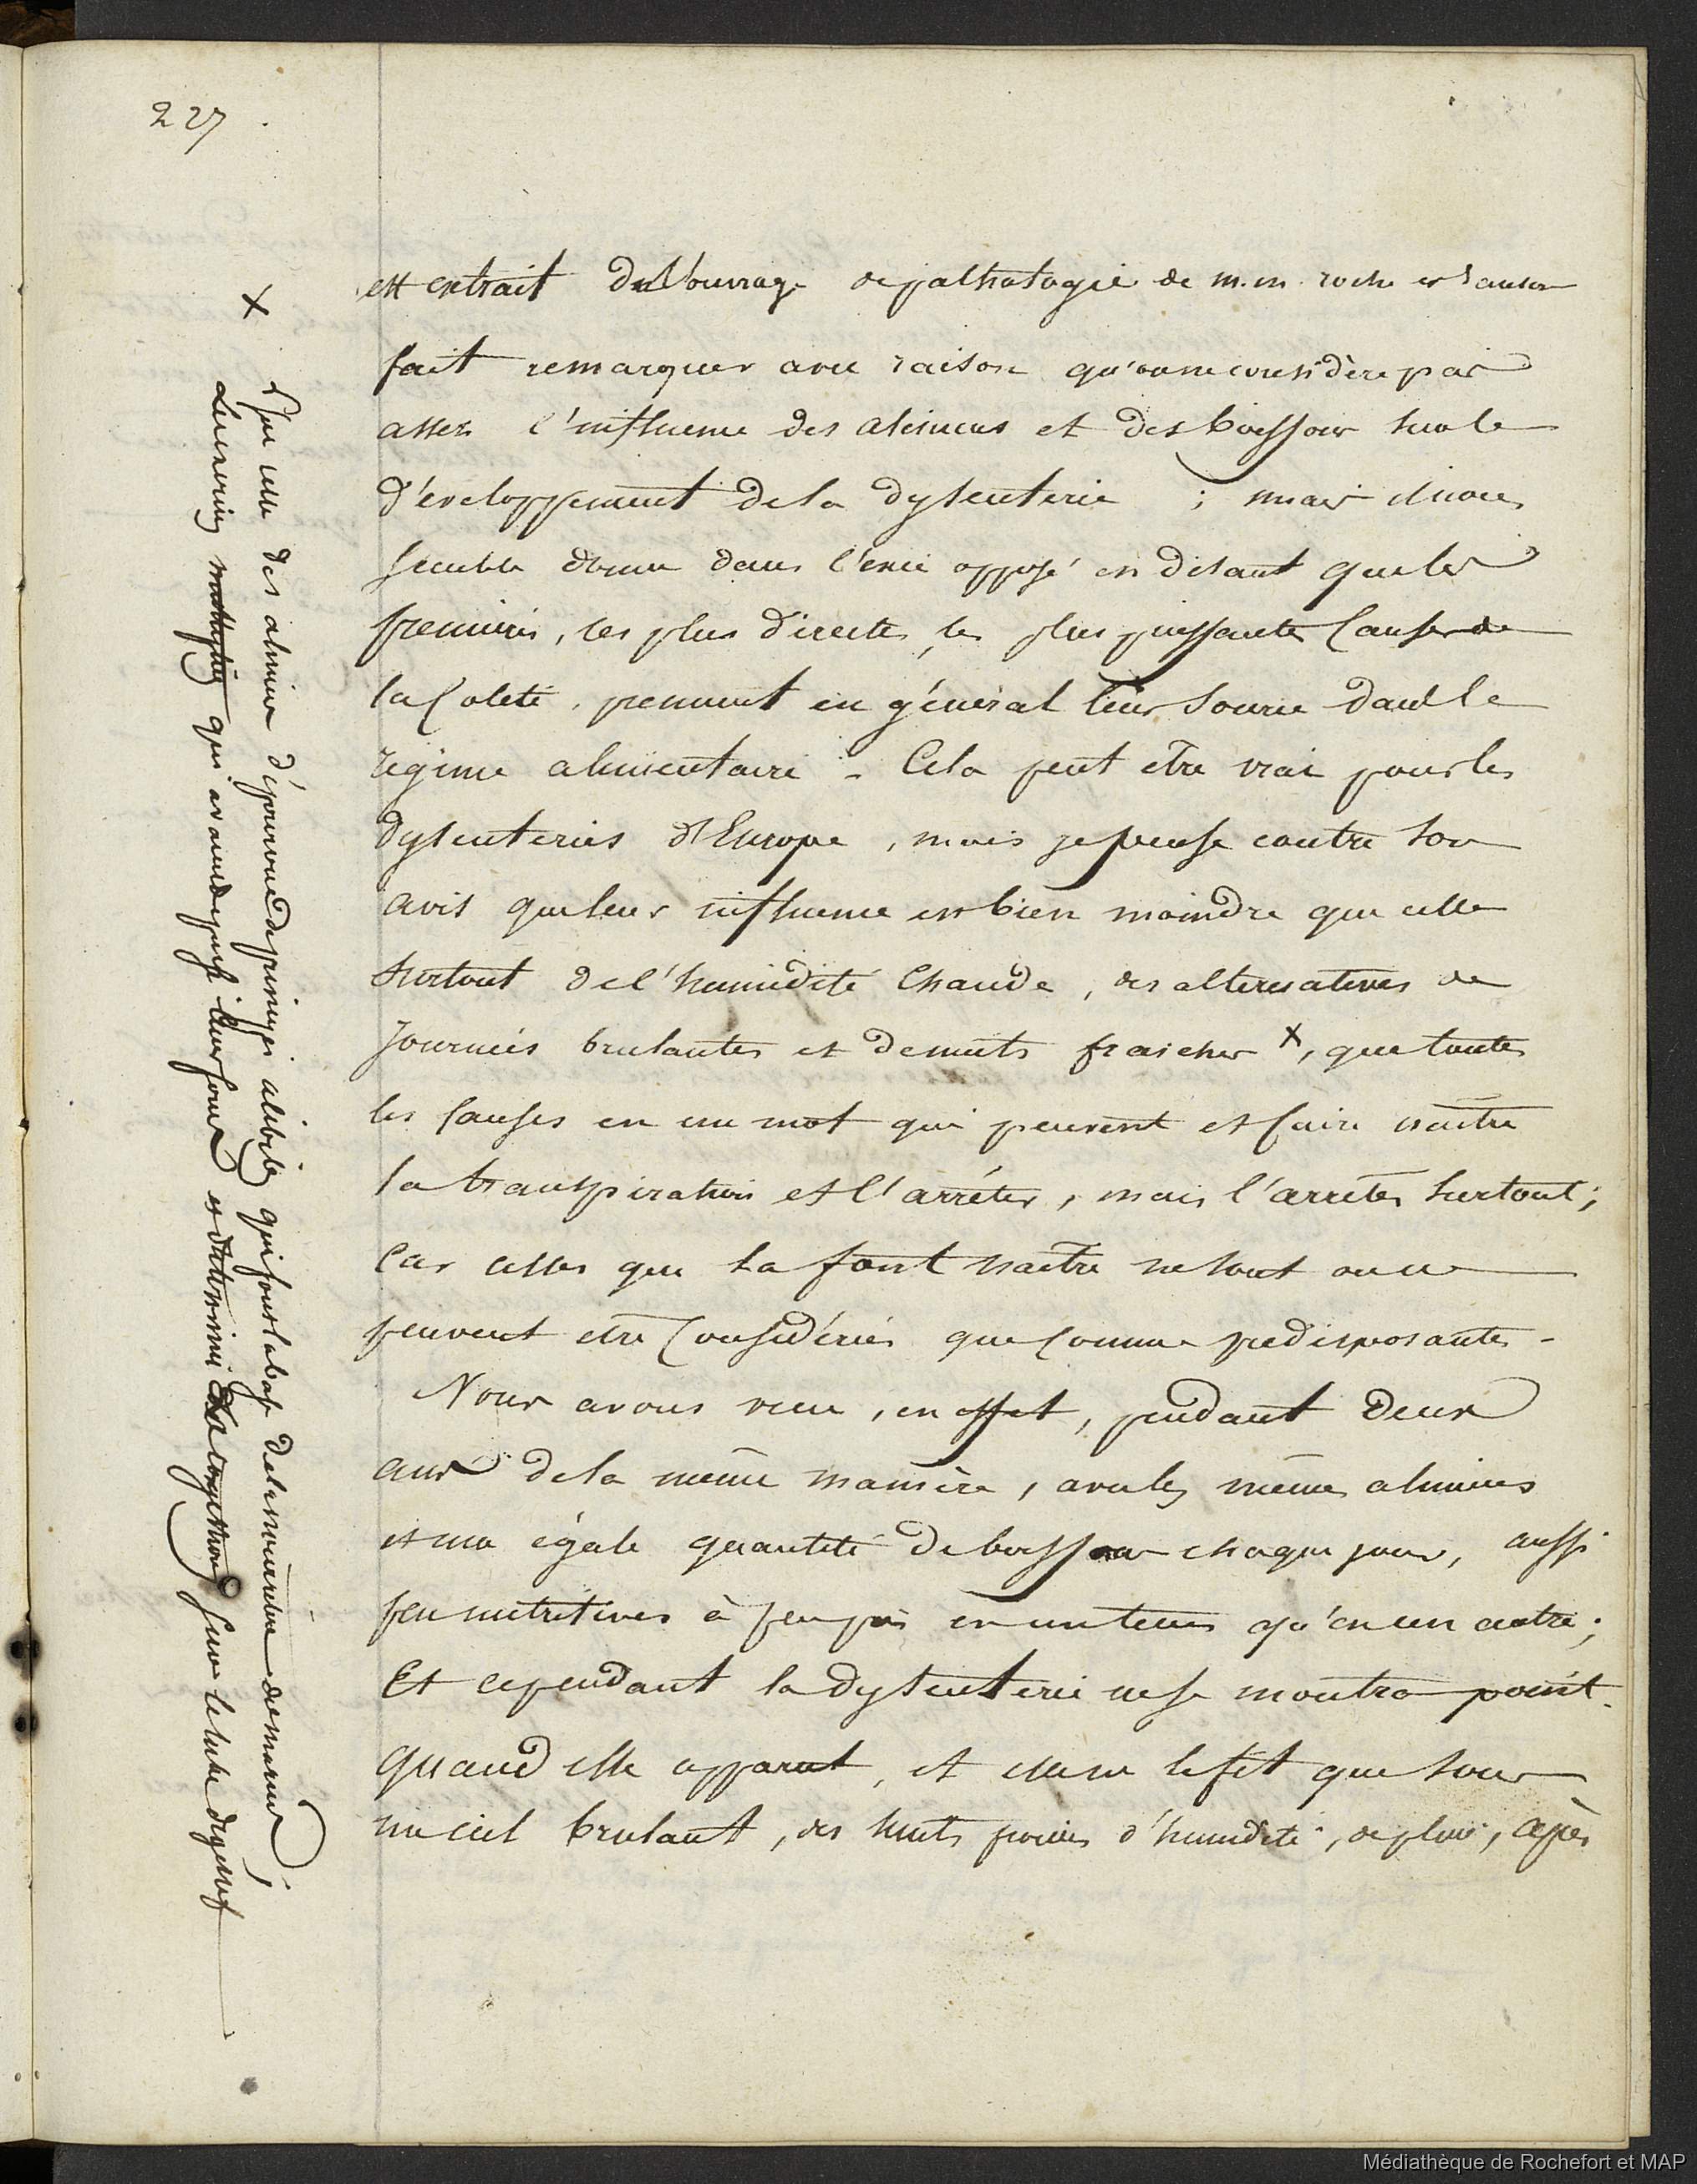 227
est extrait de l'ouvrage de pathologie de m.m. roche et sanson
fait remarquer avec raison qu'on ne considère pas
assez l'influence des alimens et des boissons sur le
d'éveloppement de la dysenterie ; mais il nous
semble donner dans l'excè opposé en disant que les
premières, les plus directes, les plus puissantes causes de
la colite, prennent en général leur source dans le
régime alimentaire - Cela peut etre vrai pour les
dysenteries d'Europe, mais je pense contre son
avis que leur influence est bien moindre que celle
surtout de l'humidité chaude, des alternatives de
journées brulantes et de nuits fraiches x, que toutes
les causes en un mot qui peuvent et faire naître
la transpiration et l'arrêter, mais l'arrêter surtout ;
car celles que la font naitre ne sont ou ne
peuvent etre considérées que comme predisposantes -
Nous avons vecu, en effet, pendant deux
ans de la même manière, avec les mêmes alimens
et une égale quantité de boisson chaque jour, aussi
peu nutritives à peu près en un tems qu'en un autre ;
Et cependant la dysenterie ne se montra point.
quand elle apparut, et elle ne le fit que sous
un ciel brulant, des nuits froides d'humidité, de pluie, après
x que celle des alimens d'épourvus de principes alibiles qui font la base de la nourriture des marins,
qui avant de puis leur font
sur le tube digestif